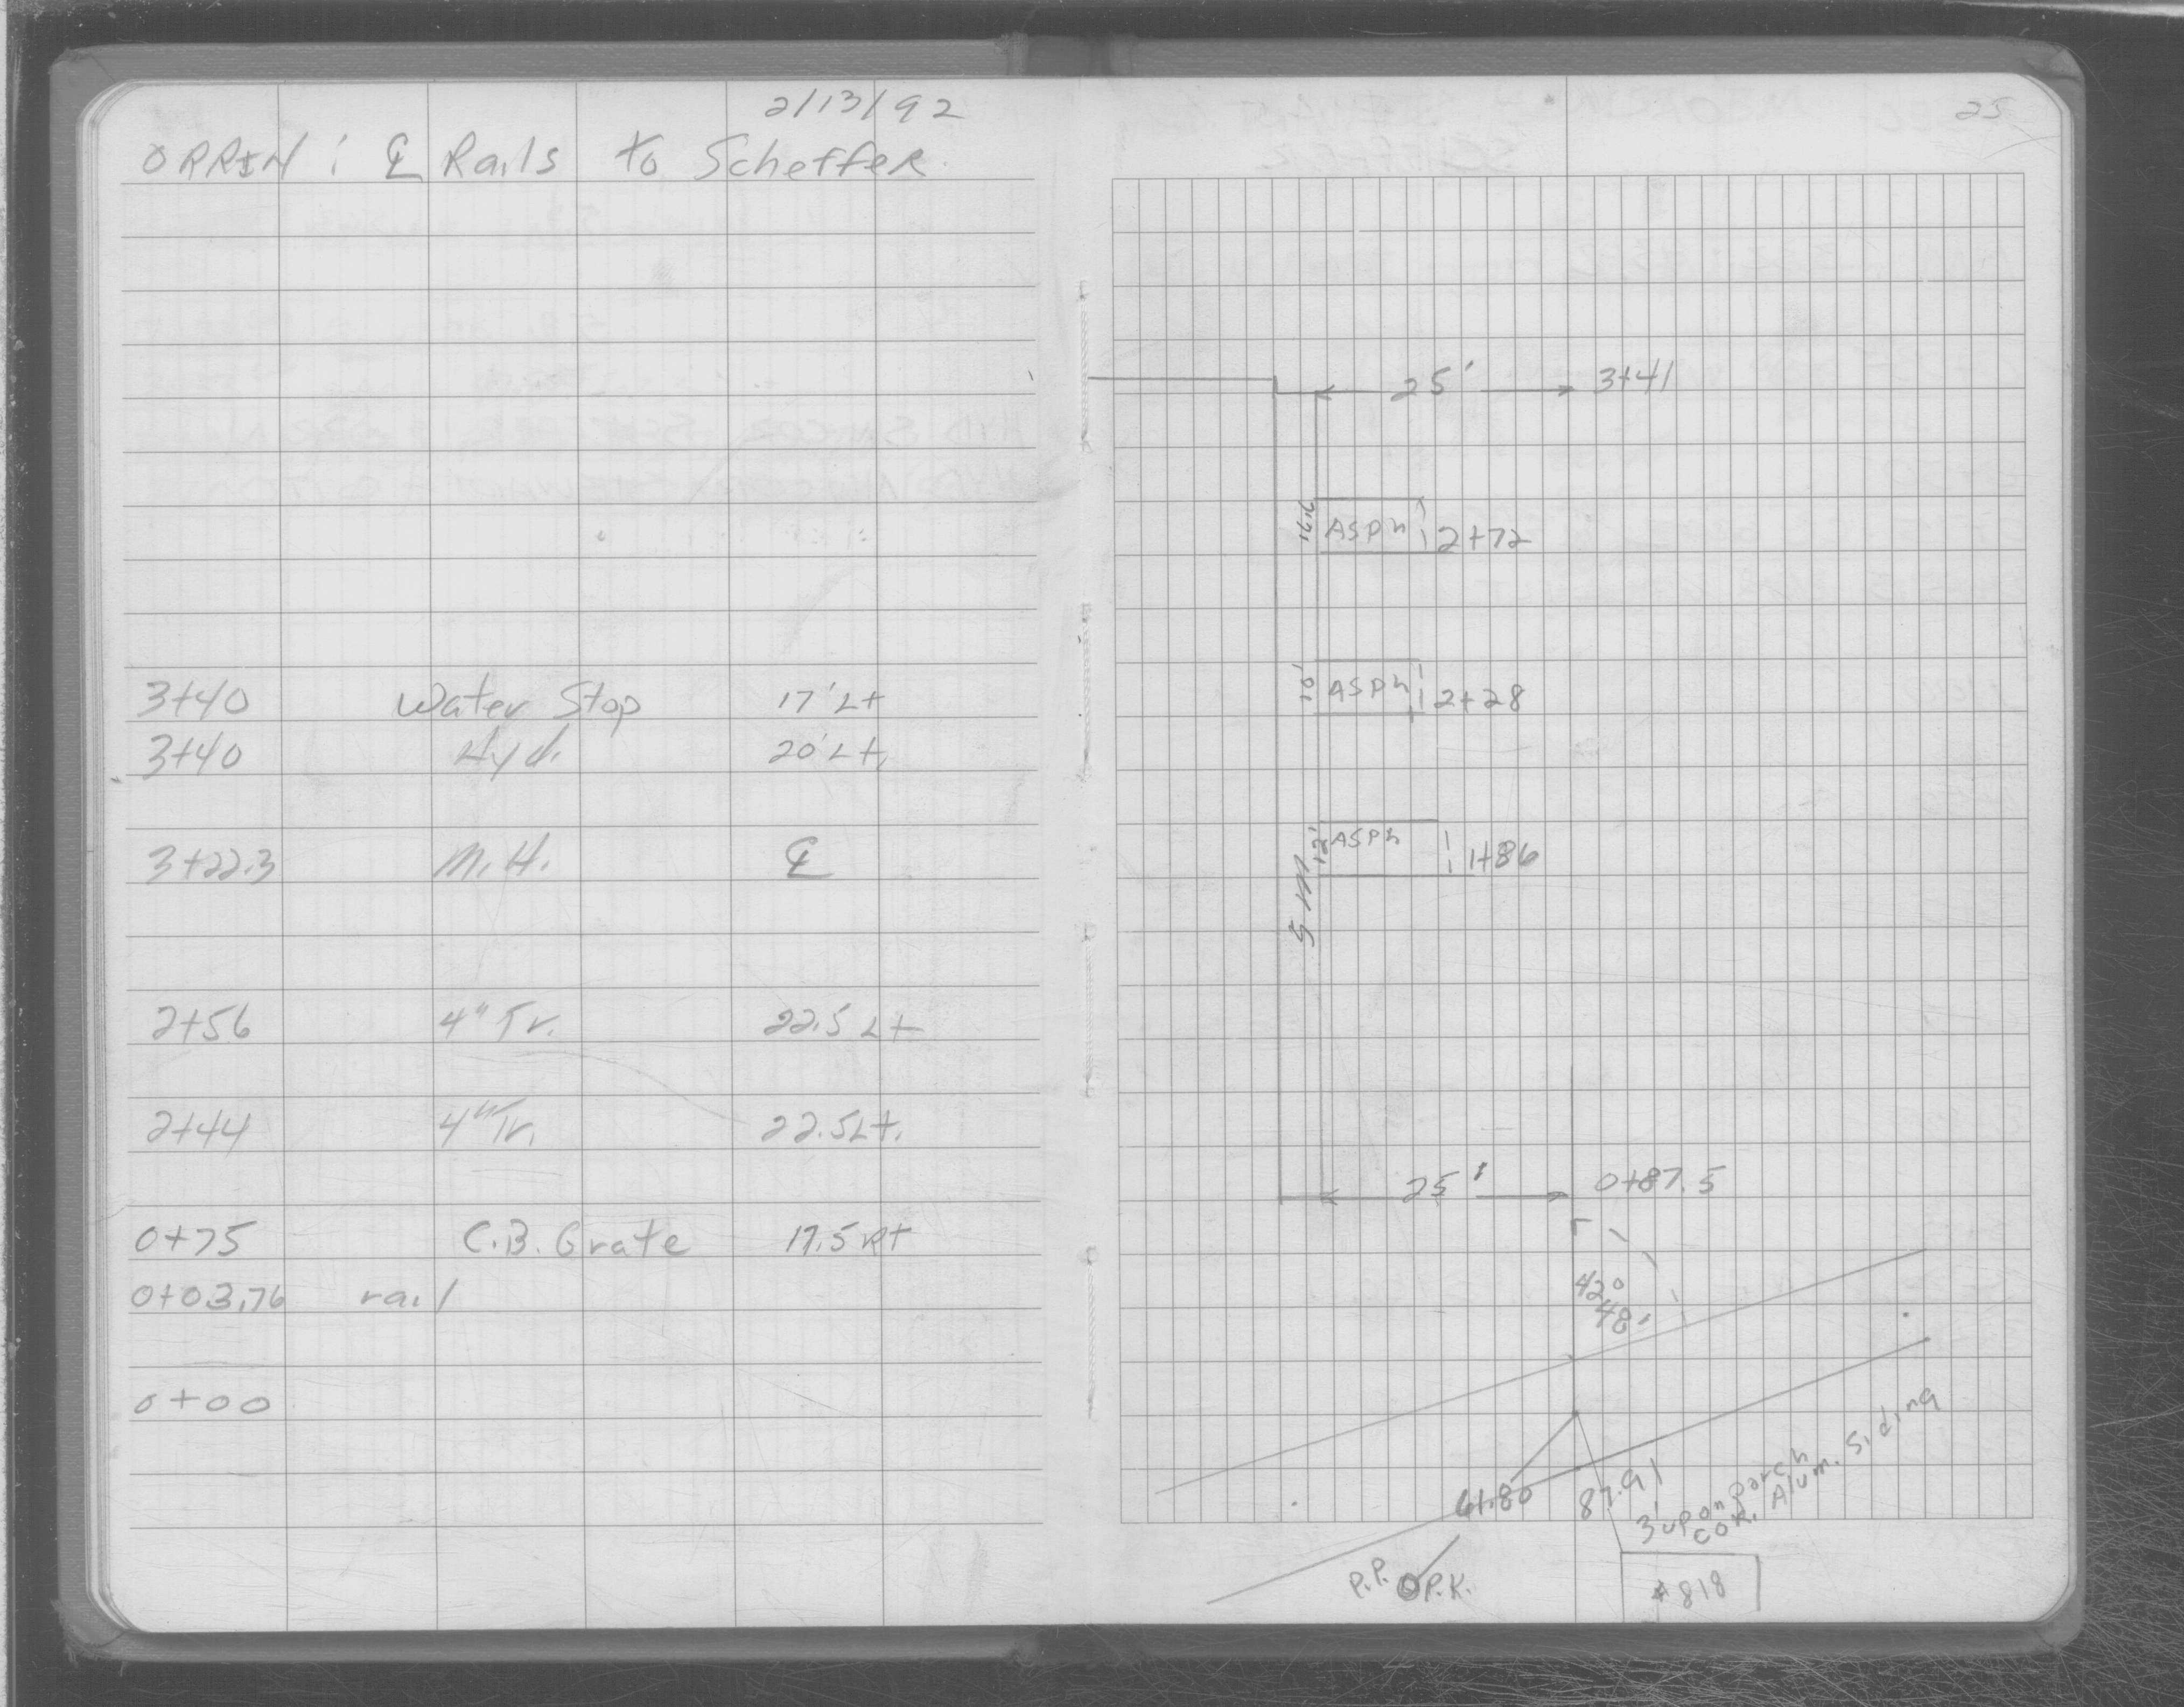 2/13/92
ORRIN : ℄ Rails to Scheffer
3+40 Water Stop 17' Lt
3+40 Hyd. 20' Lt.
3+22.3 M.H. ℄
2+56 4" Tr. 22.5 Lt
2+44 4" Tr. 22.5 Lt.
0+75 C.B. Grate 17.5 Rt
0+03.76 rail
0+00
25
25' 3+41
ASPh 2+72
10' ASPh 2+28
12' ASPh 1+86
5' W
25' 0+87.5
42°
48'
61.80 87.91
3' up on porch
cor. Alum. Siding
P.P. P.K.
#818